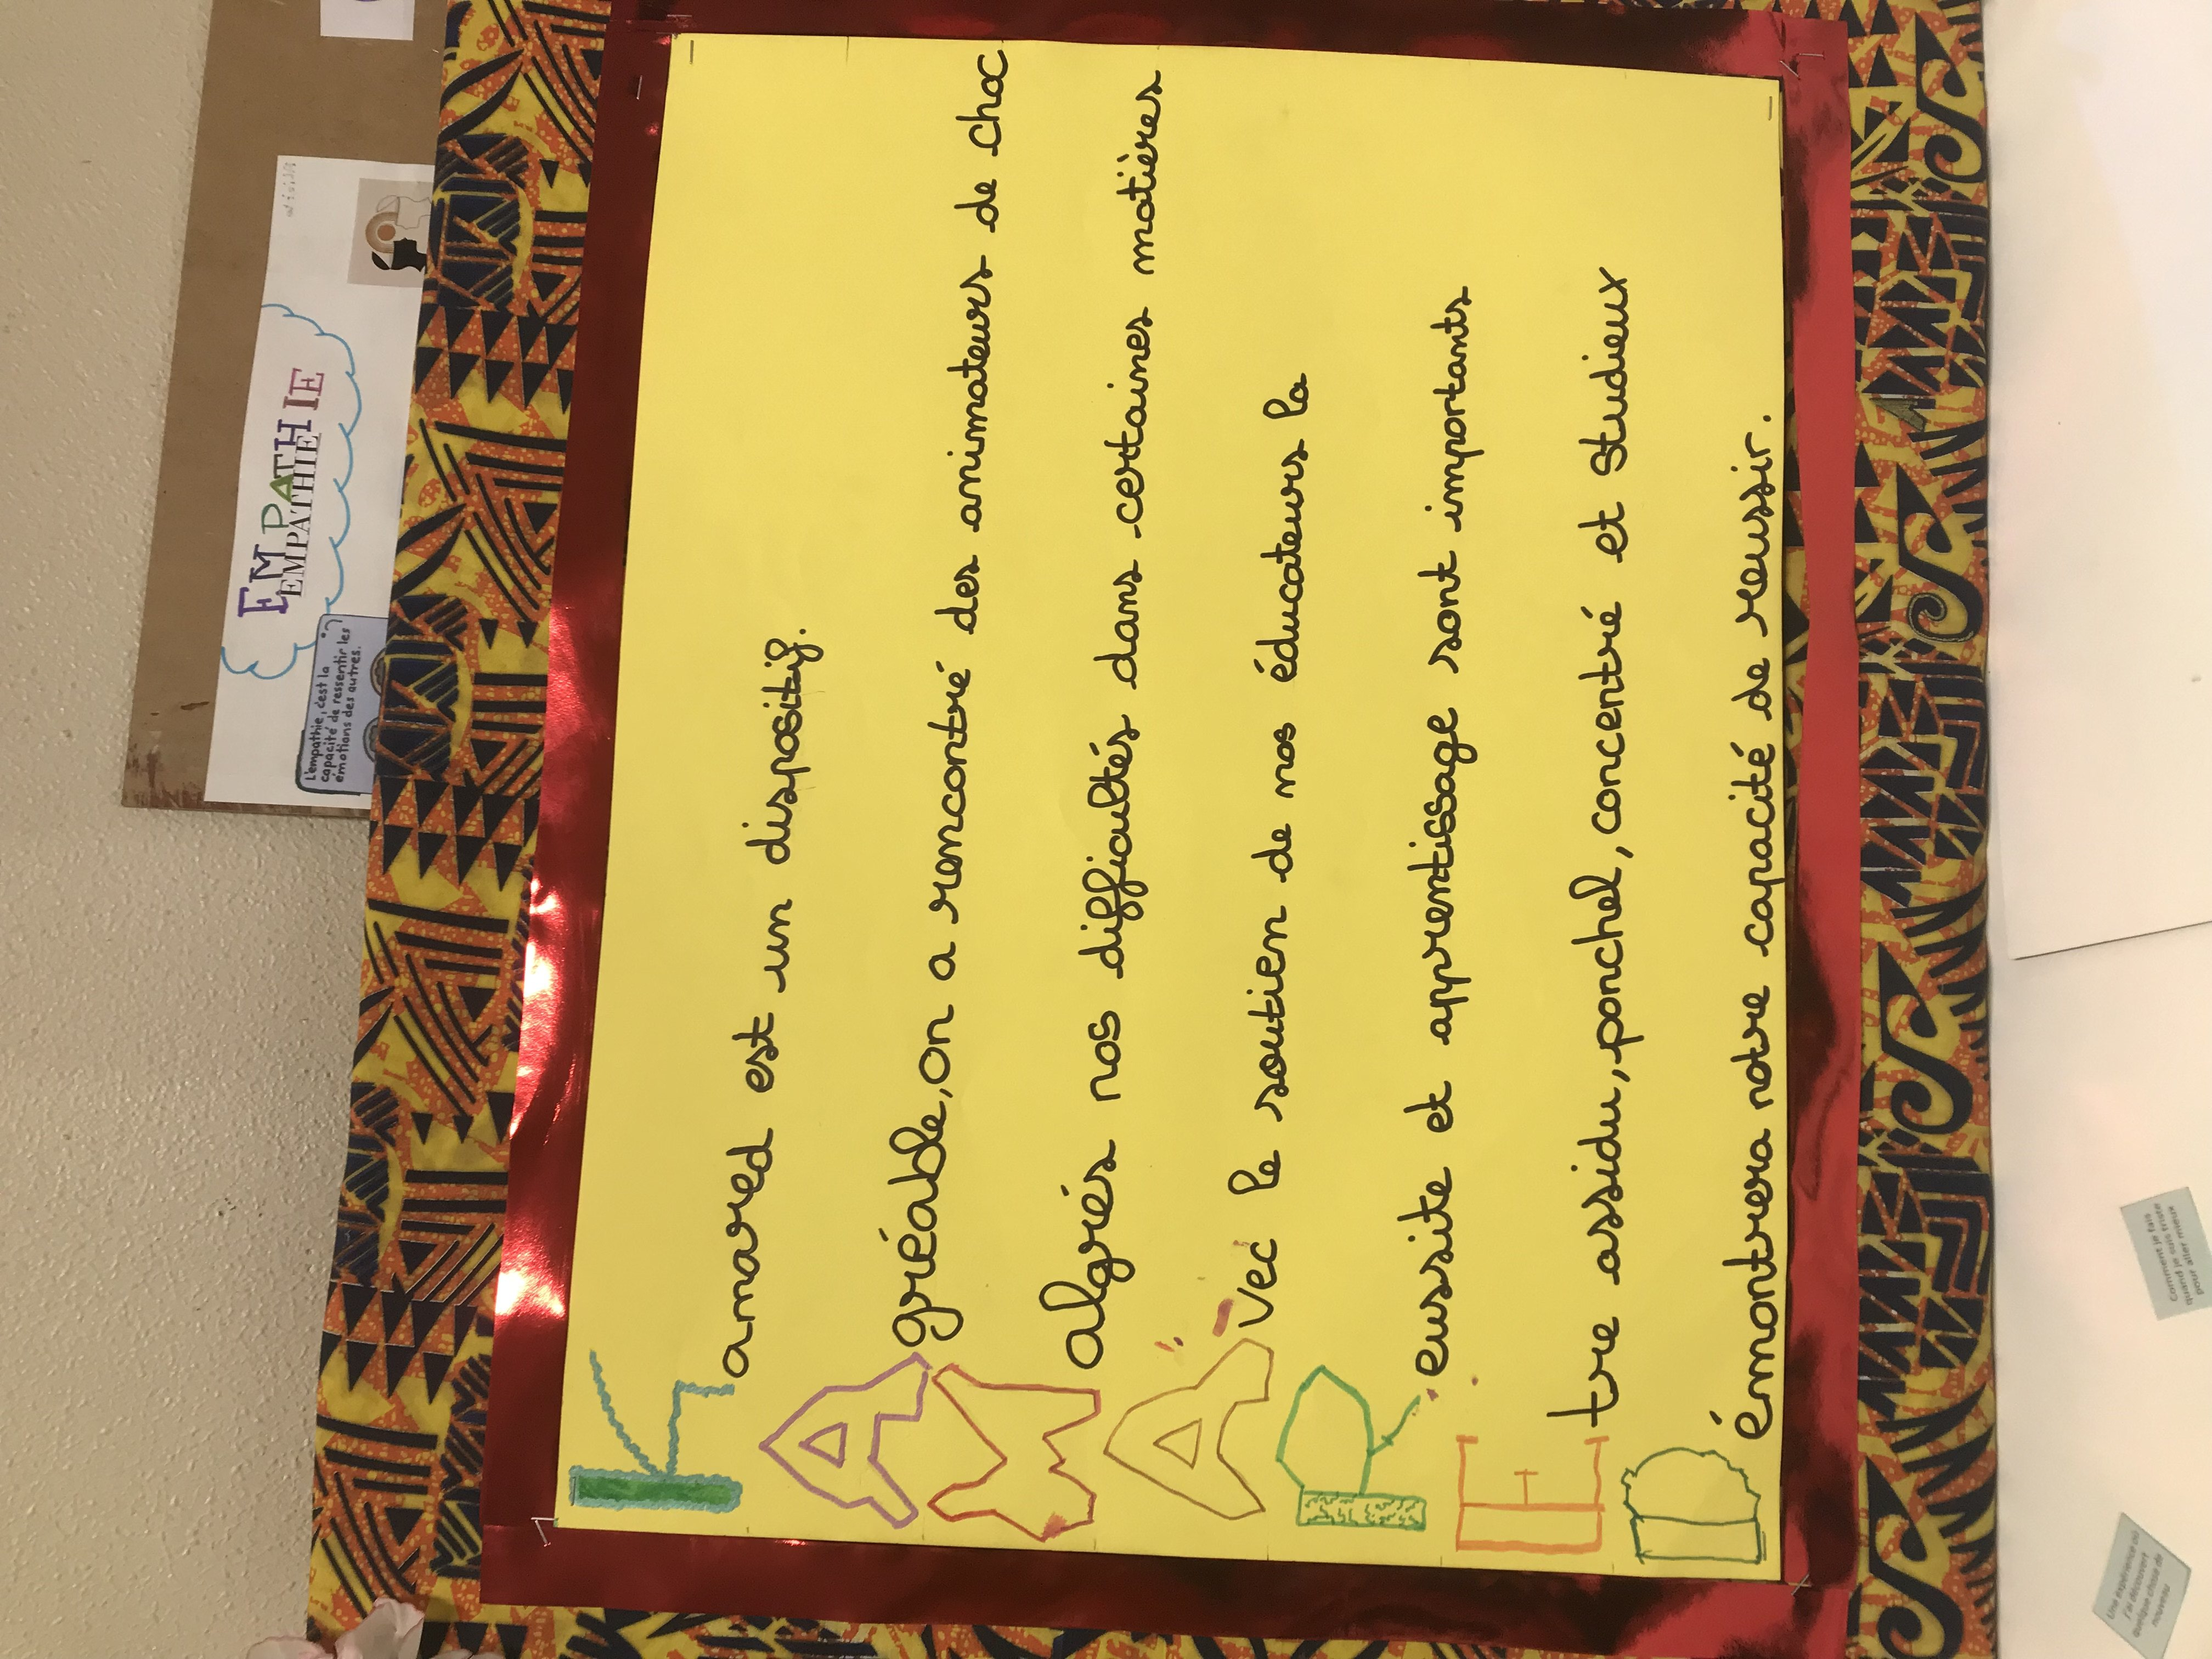 EMPATHIE
EMPATHIE
L'empathie, c'est la
capacité de ressentir les
émotions des autres.
Kamared est un dispositif.
Agréable, on a rencontré des animateurs de choc
Malgrés nos difficultés dans certaines matières
Avec le soutien de nos éducateurs la
Reussite et apprentissage sont importants
Etre assidu, ponchel, concentré et Studieux
Démontrera notre capacité de reussir.
Comment je fais
quand je suis triste
pour aller mieux
Une expérience où
j'ai découvert
quelque chose de
nouveau